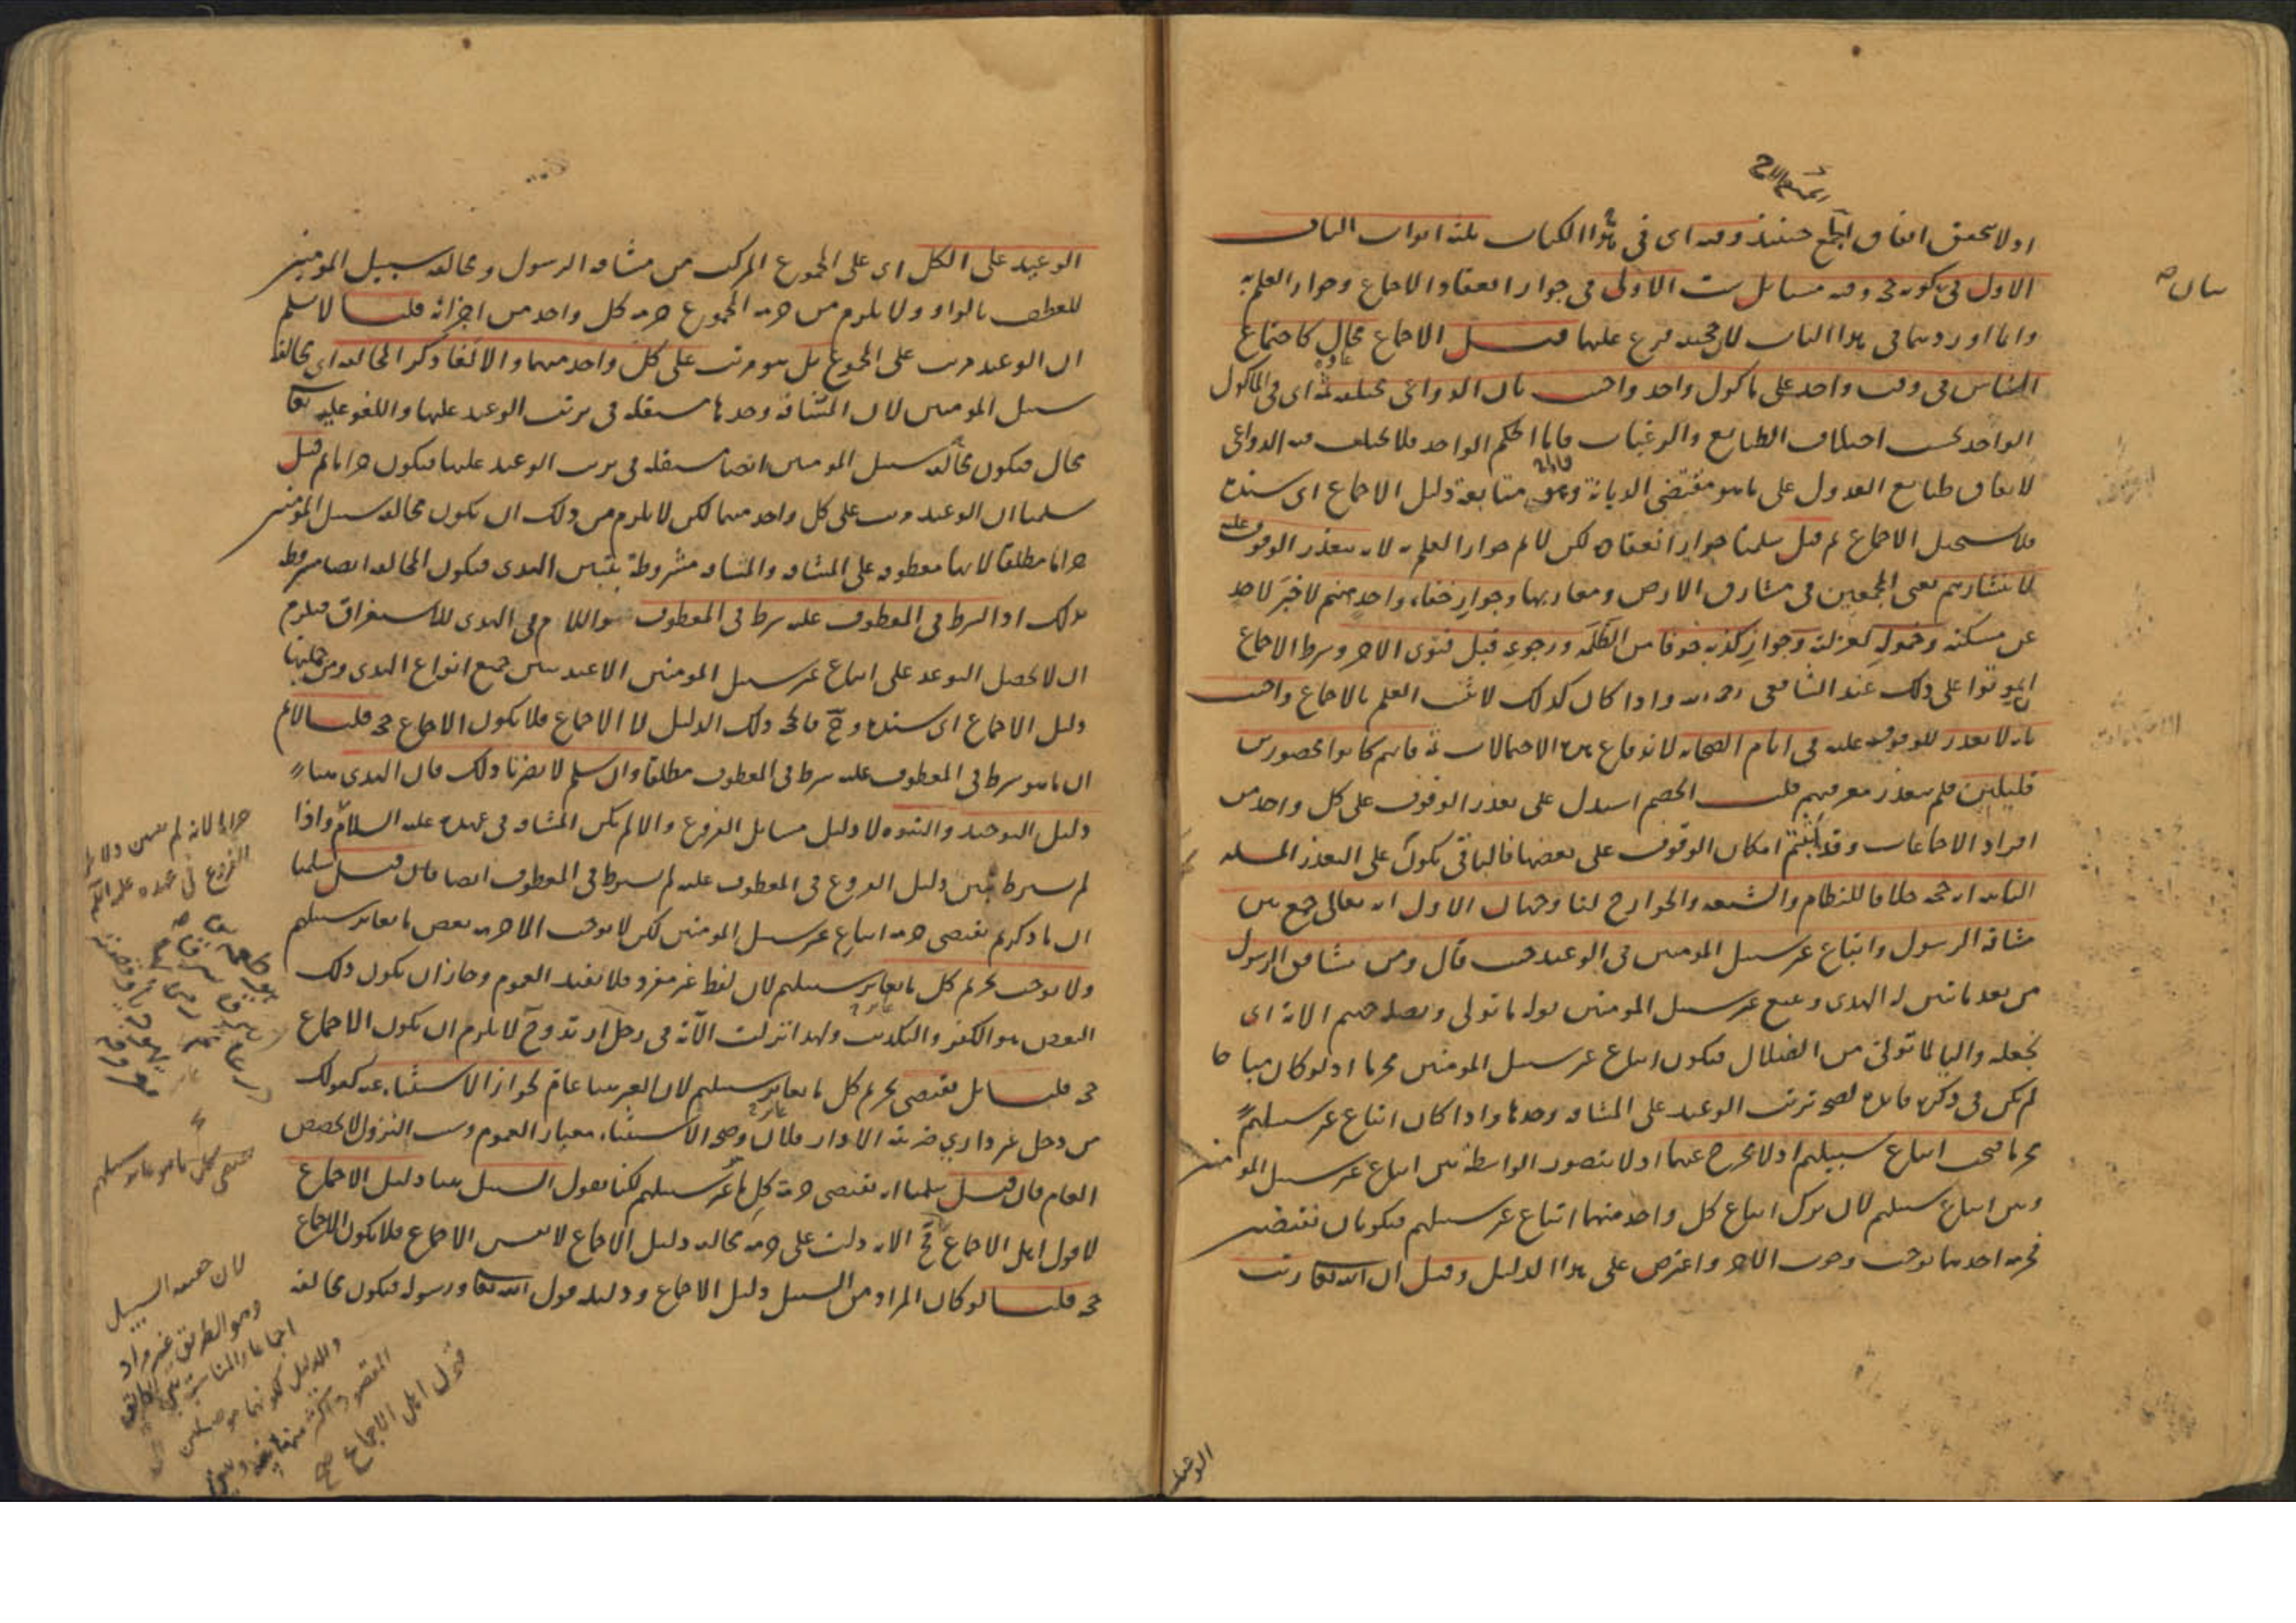 او لا يتحقق اتفاق الجميع حينئذ وفيه اى فى هذا الكتاب ثلثة ابواب الباب
الاول فى كونه حجة وفيه مسائل ست الاولى فى جواز انعقاد الاجماع وجواز العلم به
وانما اوردهما فى هذا الباب لان حجيته فرع عليهما قيل الاجماع محال كاجتماع
الناس فى وقت واحد على ماكول واحد واجيب بان الدواعى مختلفة ثمة اى فى الماكول
الواحد بحسب اختلاف الطبايع والرغبات واما الحكم الواحد فلا يختلف فيه الدواعى
لاتفاق طبايع العدول على ما هو مقتضى الديانة وهو متابعة دليل الاجماع اى سنده
فلا يستحيل الاجماع ثم قيل سلمنا جواز انعقاده لكن لا نم جواز العلم به لانه يتعذر الوقوف عليه
لانتشارهم يعنى المجمعين فى مشارق الارض ومغاربها وجواز خفاء واحد منهم لاخبر لاحد
عن مسكنه وخموله لعزلته وجواز كذبه خوفا من الظلمة ورجوعه قبل فتوى الآخر وشرط الاجماع
ان يموتوا على ذلك عند الشافعى رحمه الله واذا كان كذلك لا يثبت العلم بالاجماع واجيب
بانه لا تعذر للوقوف عليه فى ايام الصحابة لانه لا وقوع بهذه الاحتمالات ثمة فانهم كانوا محصورين
قليلين فلم يتعذر معرفتهم قلت الخصم استدل على تعذر الوقوف على كل واحد من
افراد الاجماعات وقد اثبتم امكان الوقوف على بعضها فالباقى يكون على التعذر المسئلة
الثانية انه حجة خلافا للنظام والشيعة والخوارج لنا وجهان الاول انه تعالى جمع بين
مشاقة الرسول واتباع غير سبيل المومنين فى الوعيد حيث قال ومن يشاقق الرسول
من بعد ما تبين له الهدى ويتبع غير سبيل المومنين نوله ما تولى ونصله جهنم الاية اى
نجعله واليا لما تولى من الضلال فيكون اتباع غير سبيل المومنين محرما اذ لو كان مباحا
لم يكن فى ذكره فايدة لصحة ترتب الوعيد على المشاقة وحدها واذا كان اتباع غير سبيلهم
محرما فيجب اتباع سبيلهم اذ لا مخرج عنهما اذ لا يتصور الواسطة بين اتباع غير سبيل المومنين
وبين اتباع سبيلهم لان ترك اتباع كل واحد منهما اتباع غير سبيلهم فيكونان نقيضين
فحرمة احدهما توجب وجوب الآخر واعترض على هذا الدليل وقيل ان الله تعالى رتب
الوعيد
الوعيد على الكل اى على المجموع المركب من مشاقة الرسول ومخالفة سبيل المومنين
للعطف بالواو ولا يلزم من حرمة المجموع حرمة كل واحد من اجزائه قلنا لا نسلم
ان الوعيد مرتب على المجموع بل هو مرتب على كل واحد منهما والا لغا ذكر المخالفة اى مخالفة
سبيل المومنين لان المشاقة وحدها مستقلة فى ترتب الوعيد عليها واللغو عليه تعالى
محال فيكون مخالفة سبيل المومنين ايضا مستقلة فى ترتب الوعيد عليها فيكون حراما ثم قيل
سلمنا ان الوعيد مرتب على كل واحد منهما لكن لا يلزم من ذلك ان يكون مخالفة سبيل المومنين
حراما مطلقا لانها معطوفة على المشاقة والمشاقة مشروطة بتبين الهدى فيكون المخالفة ايضا مشروطة
بذلك اذ الشرط فى المعطوف عليه شرط فى المعطوف واللام فى الهدى للاستغراق فيلزم
ان لا يحصل التوعد على اتباع غير سبيل المومنين الا عند تبين جميع انواع الهدى ومن جملتها
دليل الاجماع اى سنده وح فالحجة ذلك الدليل لا الاجماع فلا يكون الاجماع حجة قلنا لا نم
ان ما هو شرط فى المعطوف عليه شرط فى المعطوف مطلقا وان سلم لا يضرنا ذلك فان الهدى هنا
دليل التوحيد والنبوة لا دليل مسائل الفروع والا لم يكن المشاقة فى عهده عليه السلام واذا
لم يشترط تبين دليل الفروع فى المعطوف عليه لم يشترط فى المعطوف ايضا فان قيل سلمنا
ان ما ذكرتم يقتضى حرمة اتباع غير سبيل المومنين لكن لا يوجب الا حرمة بعض ما يغاير سبيلهم
ولا يوجب تحريم كل ما يغاير سبيلهم لان لفظ غير مفرد فلا يفيد العموم وجاز ان يكون ذلك
البعض هو الكفر والتكذيب ولهذا نزلت الآية فى رجل ارتد وح لا يلزم ان يكون الاجماع
حجة قلنا بل يقتضى تحريم كل ما يغاير سبيلهم لان الغير هنا عام لجواز الاستثناء عنه كقولك
من دخل غير دارى ضربته الا دار فلان وصحة الاستثناء معيار العموم وسبب النزول لا يخصص
العام فان قيل سلمنا انه يقتضى حرمة كل ما غير سبيلهم لكنا نقول السبيل هنا دليل الاجماع
لا قول اهل الاجماع فح الاية دلت على حرمة مخالفة دليل الاجماع لا نفس الاجماع فلا يكون الاجماع
حجة قلنا لو كان المراد من السبيل دليل الاجماع ودليله قول الله تعالى ورسوله فيكون مخالفة
حراما لانه لم يتبين دلايل
الفروع فى عهده عليه السلام
يقتضى كل ما هو غاير سبيلهم
لان حقيقة السبيل
وهو الطريق غير مراد
قول اهل الاجماع